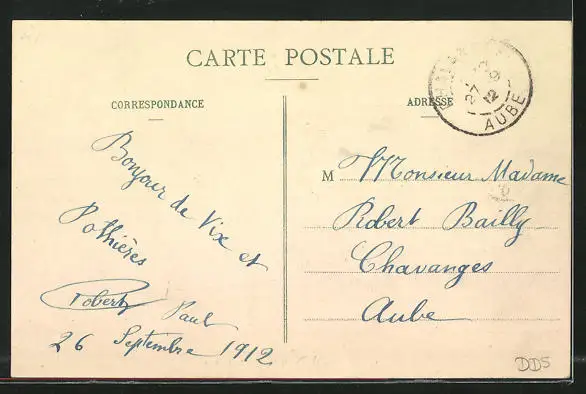 CARTE POSTALE
CORRESPONDANCE
ADRESSE
27
12
AUBE
Bonjour de Vix et
Pothières
Robert Paul
26 Septembre 1912
M Monsieur Madame
Robert Bailly
Chavanges
Aube
DDS